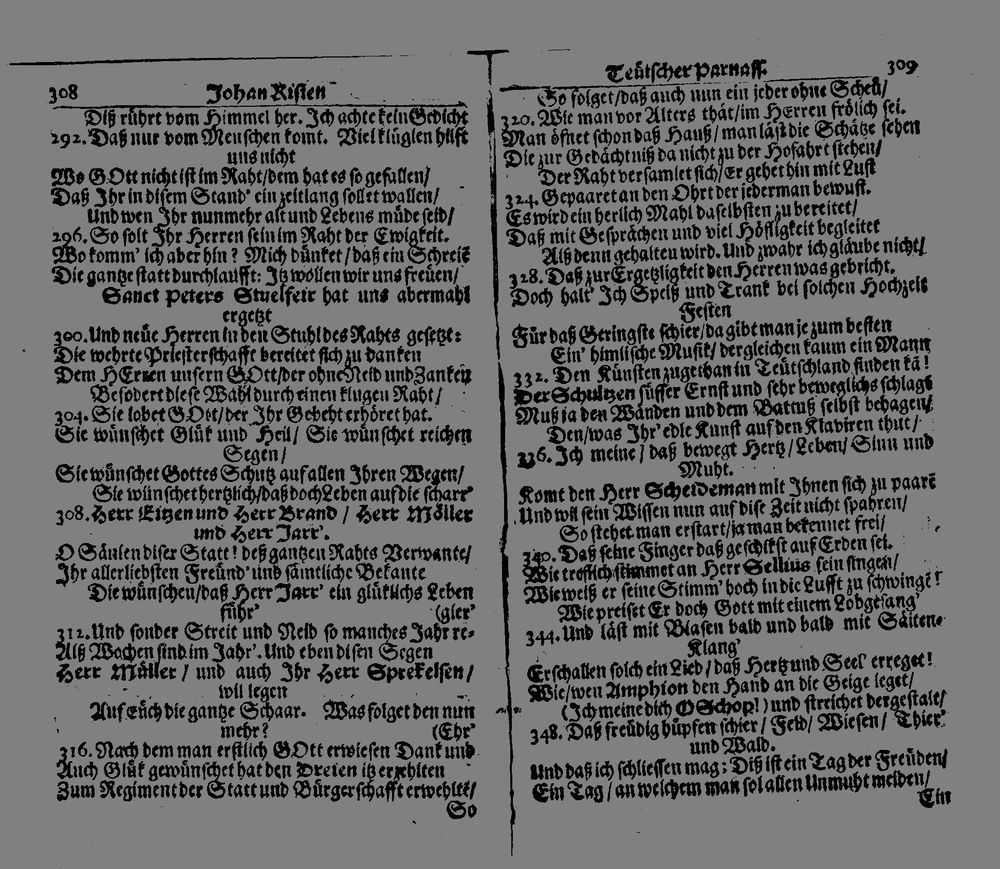 308 Johan Risten
Diß rührt vom Himmel her. Ich achte kein Gedicht
292. Daß nur vom Menschen komt. Viel klüglen hilft
uns nicht
Wo GOtt nicht ist im Raht/dem hat es so gefallen/
Daß Ihr in disem Stand' ein zeitlang sollet wallen/
Und wen Ihr nunmehr alt und Lebens müde seid/
296. So solt Ihr Herren sein im Raht der Ewigkeit.
Wo komm' ich aber hin? Mich dünket/daß ein Schreiē
Die gantze statt durchlaufft: Itz wollen wir uns freuen/
Sanct Peters Stuelfeir hat uns abermahl
ergetzt
300. Und neüe Herren in den Stuhl des Rahts gesetzt:
Die wehrte Priesterschafft bereitet sich zu danken
Dem HErren unsern GOtt/der ohne Neid und Zanken
Befodert diese Wahl durch einen klugen Raht/
304. Sie lobet GOtt/der Ihr Gebeht erhöret hat.
Sie wünschet Glük und Heil/ Sie wünschet reichen
Segen/
Sie wünschet Gottes Schutz auf allen Ihren Wegen/
Sie wünschet hertzlich/daß doch Leben auf die schar'
308. Herr Eitzen und Herr Brand / Herr Möller
und Herr Jarr'.
O Säulen diser Statt! deß gantzen Rahts Verwante/
Ihr allerliebsten Freünd' und sämtliche Bekante
Die wünschen/daß Herr Jarr' ein glüklichs Leben
führ' (gier'
312. Und sonder Streit und Neid so manches Jahr re-
Alß Wochen sind im Jahr'. Und eben disen Segen
Herr Müller/ und auch Ihr Herr Sprekelsen/
wil legen
Auf Eüch die gantze Schaar. Was folget den nun
mehr? (Ehr'
316. Nach dem man erstlich GOtt erwiesen Dank und
Auch Glük gewünschet hat den Dreien itz erzehlten
Zum Regiment der Statt und Bürgerschafft erwehltē/
So
Teütscher Parnass. 309
So folget/daß auch nun ein jeder ohne Scheü/
320. Wie man vor Alters thät/im HErren frölich sei.
Man öfnet schon daß Hauß/man läst die Schätze sehen
Die zur Gedächtniß da nicht zu der Hofahrt stehen/
Der Raht versamlet sich/Er gehet hin mit Lust
324. Gepaaret an den Ohrt der jederman bewust.
Es wird ein herlich Mahl daselbsten zu bereitet/
Daß mit Gesprächen und viel Höfligkeit begleitet
Alß denn gehalten wird. Und zwahr ich gläube nicht/
328. Daß zur Ergetzligkeit den Herren was gebricht.
Doch halt' Ich Speiß und Trank bei solchen Hochzeit
Festen
Für daß Geringste schier/da gibt man je zum besten
Ein' himlische Musik/ dergleichen kaum ein Mann
332. Den Künsten zugethan in Teütschland finden kā!
Der Schultzen süsser Ernst und sehr beweglichs schlagē
Muß ja den Wänden und dem Battuß selbst behagen/
Den/was Ihr' edle Kunst auf den Klaviren thut/
336. Ich meine/ daß bewegt Hertz/Leben/ Sinn und
Muht.
Komt den Herr Scheideman mit Ihnen sich zu paarē
Und wil sein Wissen nun auf dise Zeit nicht spahren/
So stehet man erstart/ja man bekennet frei/
340. Daß seine Finger daß geschikst auf Erden sei.
Wie treflich stimmet an Herr Sellius sein singen/
Wie weiß er seine Stimm' hoch in die Lufft zu schwingē!
Wie preiset Er doch Gott mit einem Lobgesang'
344. Und läst mit Blasen bald und bald mit Säiten-
Klang'
Erschallen solch ein Lied/ daß Hertz und Seel' erreget!
Wie/wen Amphion den Hand an die Geige leget/
(Ich meine dich O Schop!) und streichet dergestalt/
348. Daß freüdig hüpfen schier/ Feld/ Wiesen/ Thier'
und Wald.
Und daß ich schliessen mag; Diß ist ein Tag der Freüden/
Ein Tag/an welchem man sol allen Unmuht meiden/
Ein